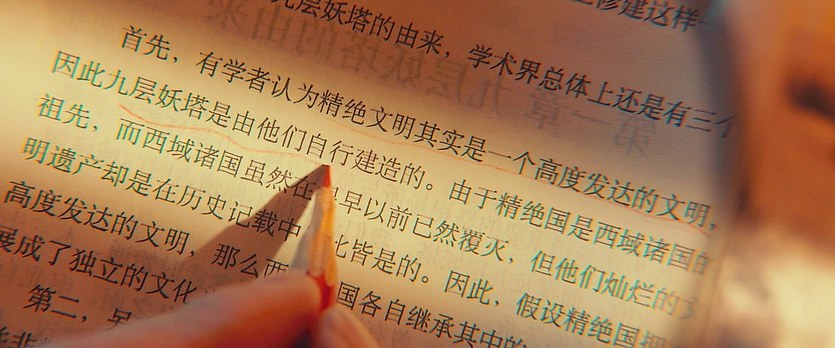 上修建这样一
九层妖塔的由来，学术界总体上还是有三个
首先，有学者认为精绝文明其实是一个高度发达的文明，
因此九层妖塔是由他们自行建造的。由于精绝国是西域诸国的
祖先，而西域诸国虽然在 早以前已然覆灭，但他们灿烂的文
明遗产却是在历史记载中 比皆是的。因此，假设精绝国拥
高度发达的文明，那么西 国各自继承其中的
展成了独立的文化
第二，另
第一章 九层妖塔的由来